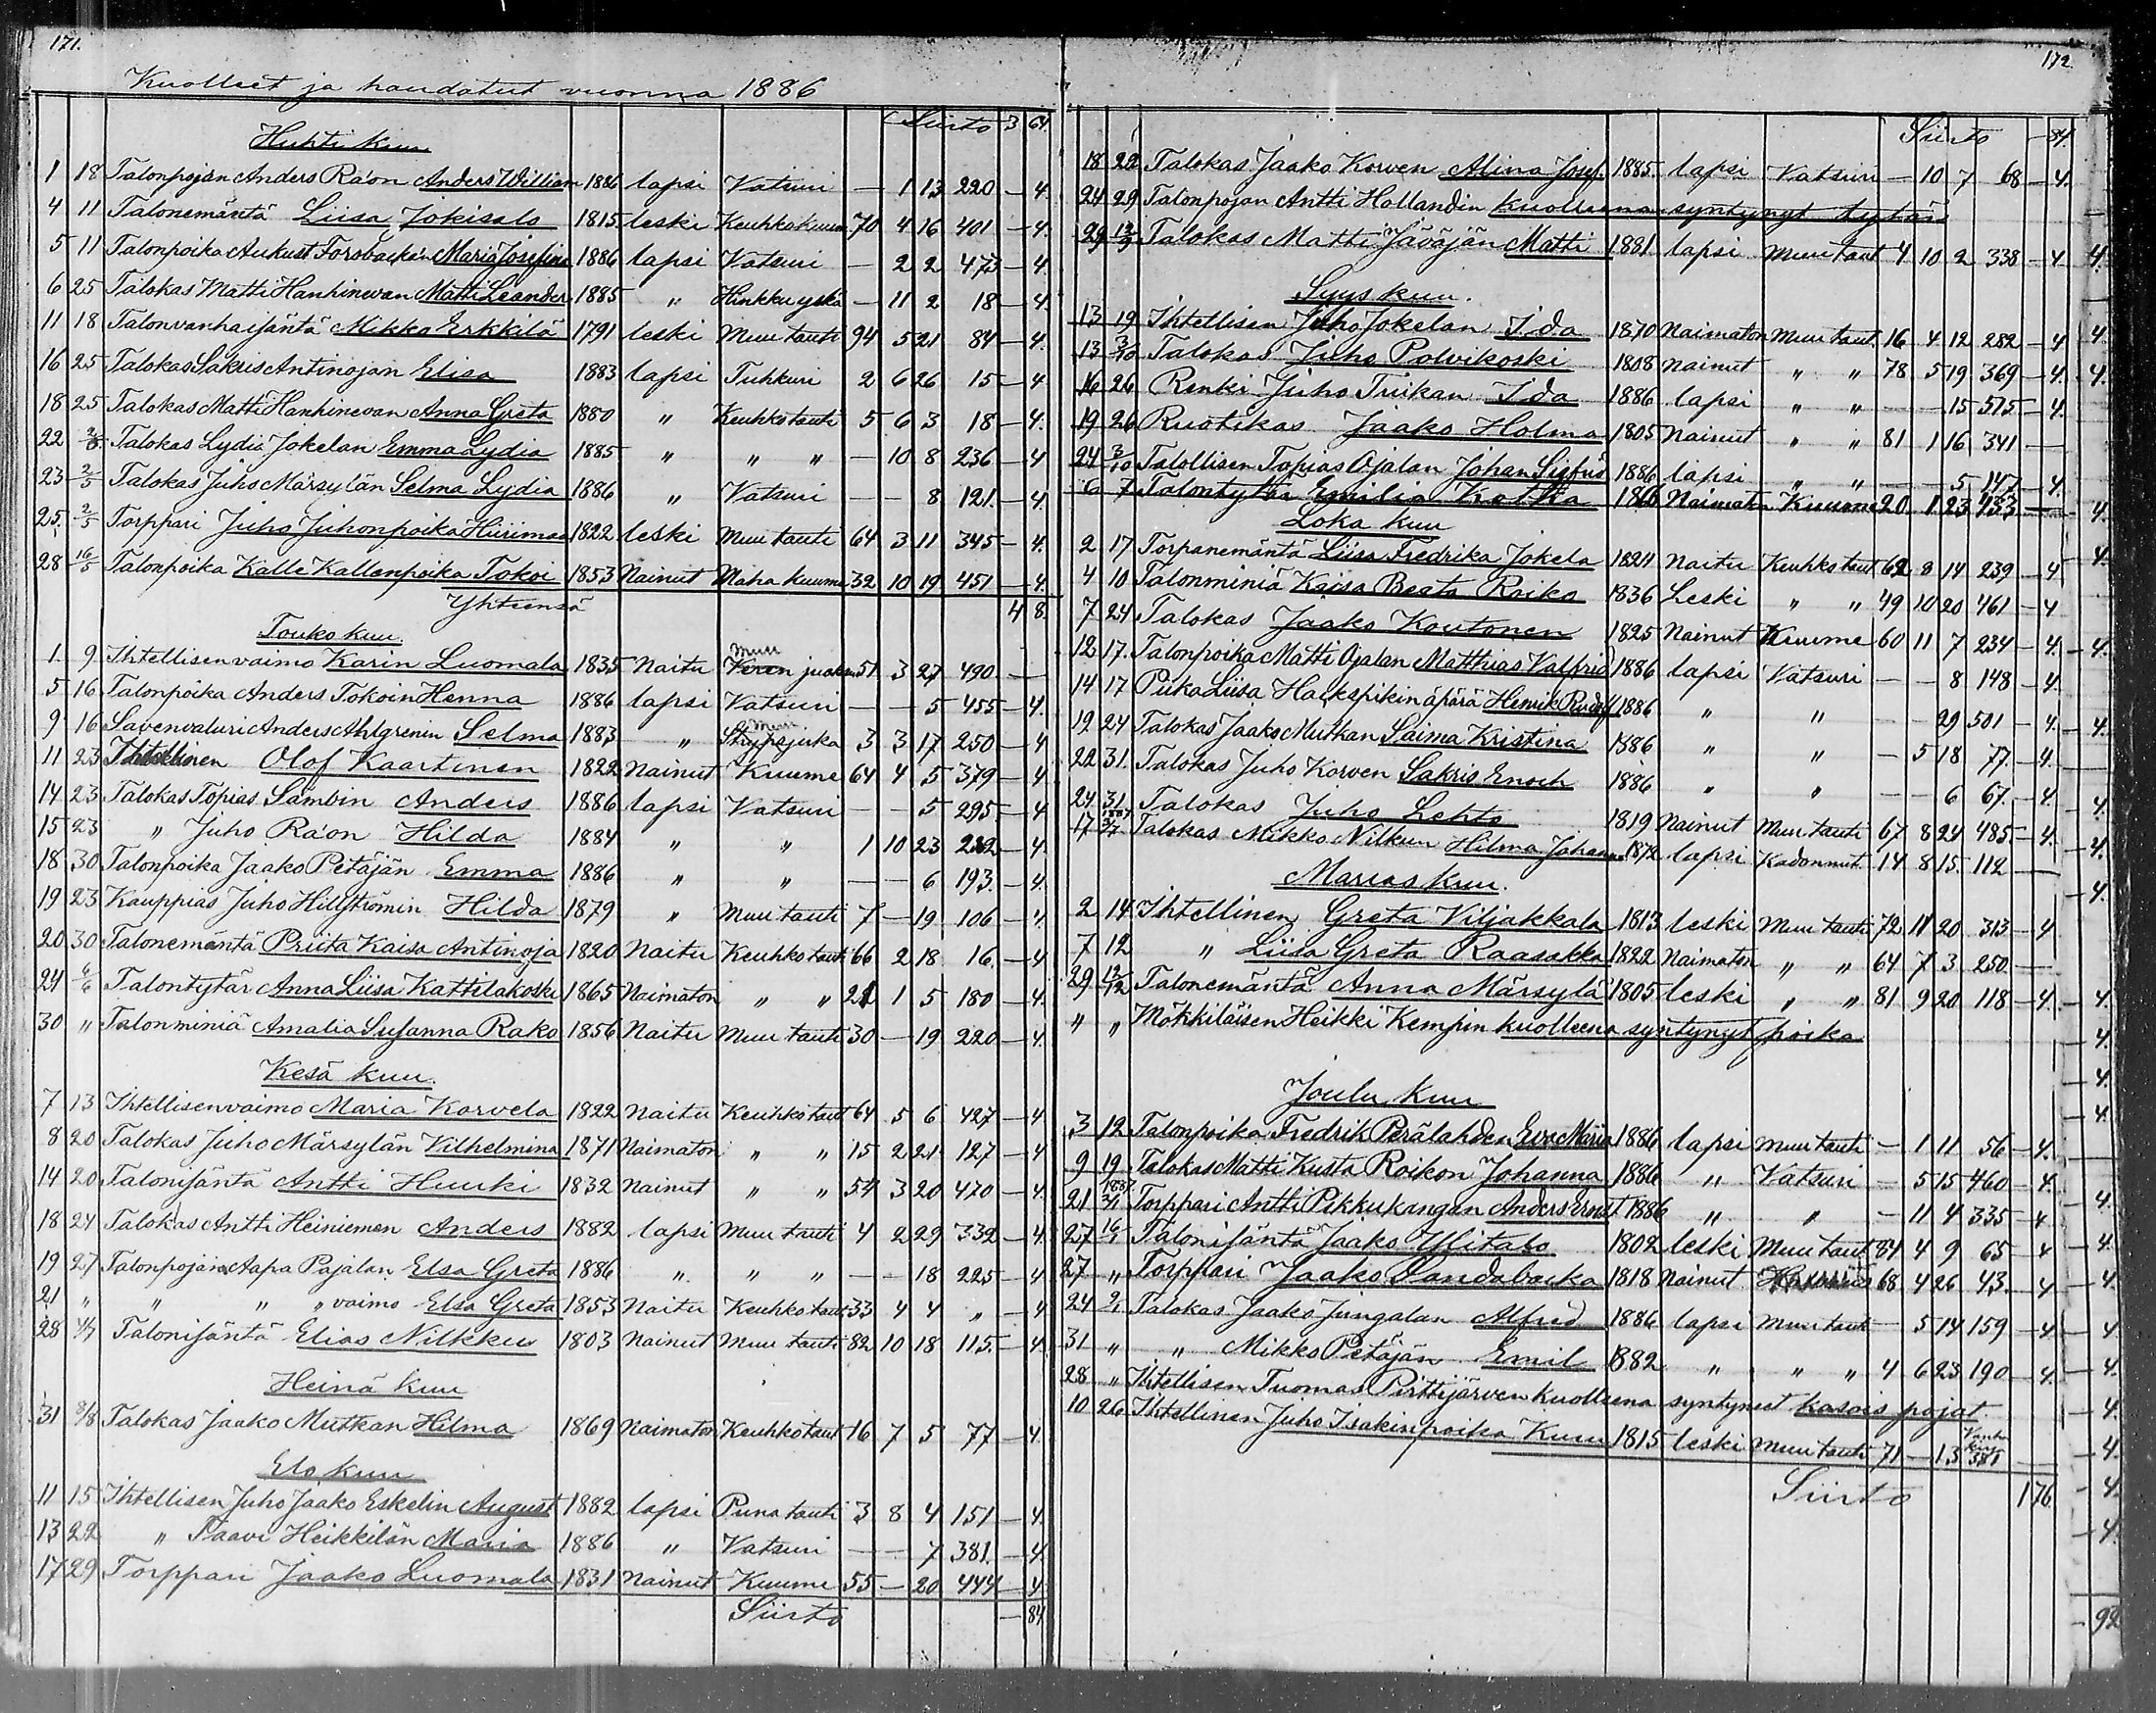 171.
Kuolleet ja haudatut vuonna 1886
Siirto 3 64
Huhti kuu
1 18 Talonpojan Anders Ra'on Anders William 1886 lapsi Vatsuri — 1 13 220 — 4.
4 11 Talonemäntä Liisa Jokisalo 1815 leski Keuhkokuum 70 4 16 401 — 4.
5 11 Talonpoika Aukust Forsbackan Maria Josefina 1886 lapsi Vatsuri — 2 2 473 — 4
6 25 Talokas Matti Hanhinevan Matti Leander 1885 " Hinkku yskä — 11 2 18 — 4.
11 18 Talonvanhaisäntä Mikko Erkkilä 1791 leski Muu tauti 94 5 21 84 — 4.
16 25 Talokas Sakris Antinojan Elisa 1883 lapsi Tuhkuri 2 6 26 15 — 4
18 25 Talokas Matti Hanhinevan Anna Greta 1880 " Keuhkotauti 5 6 3 18 — 4.
22 2/5 Talokas Lydia Jokelan Emma Lydia 1885 " " " — 10 8 236 — 4
23 2/5 Talokas Juho Märsylän Selma Lydia 1886 " Vatsuri — — 8 121. — 4.
25. 2/5 Torppari Juho Juhonpoika Hiirimaa 1822 leski Muu tauti 64 3 11 345 — 4.
28 16/5 Talonpoika Kalle Kallenpoika Tokoi 1853 Nainut Maha kuume 32 10 19 451 — 4.
Yhteensä 4 8.
Touko kuu.
1. 9. Ihtellisenvaimo Karin Luomala 1835 Naitu Muu Veren juoksu 51 3 27 490. —
5 16 Talonpoika Anders Tokoin Henna 1886 lapsi Vatsuri — — 5 455 — 4.
9 16 Savenvaluri Anders Ahlgrenin Selma 1883 " Muu Strypsjuka 3 3 17 250 — 4
11 23 Ihtellinen Olof Kaartinen 1822 Nainut Kuume 64 4 5 379 — 4
14 23 Talokas Topias Sämbin Anders 1886 lapsi Vatsuri — — 5 295 — 4
15 23 " Juho Ra'on Hilda 1884 " " 1 10 23 — 4.
18 30 Talonpoika Jaako Petäjän Emma 1886 " " — — 6 193. — 4.
19 23 Kauppias Juho Hillströmin Hilda 1879 " Muu tauti 7 — 19 106 — 4.
20 30 Talonemäntä Priita Kaisa Antinoja 1820 Naitu Keuhko taut 66 2 18 16. — 4
24 6/6 Talontytär Anna Liisa Kattilakoski 1865 Naimaton " " 21 1 5 180 — 4.
30 " Talonminiä Amalia Susanna Rako 1856 Naitu Muu tauti 30 — 19 220 — 4.
Kesä kuu.
7 13 Ihtellisenvaimo Maria Karvela 1822 Naitu Keuhko taut 64 5 6 427 — 4
8 20 Talokas Juho Märsylän Vilhelmina 1871 Naimaton " " 15 2 21 127 — 4
14 20 Talonisäntä Antti Huuki 1832 Nainut " " 54 3 20 470 — 4.
18 24 Talokas Antti Heiniemen Anders 1882 lapsi Muu tauti 4 2 29 332 — 4.
19 27 Talonpojan Aapa Pajalan Elsa Greta 1886 " " " — — 18 225 — 4
21 " " " " vaimo Elsa Greta 1853 Naitu Keuhko taut 33 4 4 " — 4
28 4/7 Talonisäntä Elias Nilkku 1803 Nainut Muu tauti 82 10 18 115. — 4
Heinä kuu
31 8/8 Talokas Jaako Mutkan Hilma 1869 Naimaton Keuhkotaut 16 7 5 77 — 4.
Elo kuu
11 15 Ihtellisen Juho Jaako Eskelin August 1882 lapsi Puna tauti 3 8 4 151 — 4.
13 22 " Taavi Heikkilän Maria 1886 " Vatsuri — — 7 381. — 4.
17 29 Torppari Jaako Luomala 1831 Nainut Kuume 55 — 20 444 — 4
Siirto — 84
172.
Siirto — 84.
18 22 Talokas Jaako Korven Alina Josef. 1885. lapsi Vatsuri — 10 7 68 — 4.
24 29 Talonpojan Antti Hollandin kuolleena syntynyt tytär —
29 12/9 Talokas Matti Jäväjän Matti 1881 lapsi Muu taut 4 10 2 338 — 4 4.
Syys kuu.
13 19 Ihtellisen Juho Jokelan Ida 1870 Naimaton Muu taut. 16 4 12 282 — 4 4.
13 3/10 Talokas Juho Polvikoski 1808 Nainut " " 78 5 19 369 — 4. 4.
16 26 Renki Juho Tuikan Ida 1886 lapsi " " — — 15 515 — 4.
19 26 Ruotikas Jaako Holma 1805 Nainut " " 81 1 16 341 —
24 3/10 Talollisen Topias Ojalan Johan Sigfrid 1886 lapsi " " — — 5 147 — 4.
6 7 Talontytär Emilia Kotka 1866 Naimaton Kuume 20 1 23 433 — 4.
Loka kuu
2 17 Torpanemäntä Liisa Fredrika Jokela 1824 Naitu Keuhko taut 62 8 14 239 — 4 4.
4 10 Talonminiä Kaisa Beata Roiko 1836 Leski " " 49 10 20 461 — 4
7 24 Talokas Jaako Koutonen 1825 Nainut Kuume 60 11 7 234 — 4. 4.
12 17. Talonpoika Matti Ojalan Matthias Valfrid 1886 lapsi Vatsuri — — 8 148 — 4.
14 17 Piika Liisa Hackspikin äpärä Henrik Rudolf 1886 " " — — 29 501 — 4. 4.
19 24 Talokas Jaako Mutkan Saima Kristina 1886 " " — 5 18 77. — 4.
22 31. Talokas Juho Korven Sakris Enoch 1886 " " — — 6 67. — 4. 4.
24 31 Talokas Juho Lehto 1819 Nainut Muu tauti 67 8 24 485. — 4. 4.
17 1887 Talokas Mikko Nilkun Hilma Johanna 1872 lapsi Kadonnut 14 8 15 112 —
Marras kuu. 4.
2 14 Ihtellinen Greta Viljakkala 1813 leski Muu tauti 72 11 20 313 — 4
7 12 " Liisa Greta Raasakka 1822 Naimaton " " 64 7 3 250 —
29 12/12 Talonemäntä Anna Märsylä 1805 leski " " 81 9 20 118 — 4. 4.
" " Mökkiläisen Heikki Kempin kuolleena syntynyt poika 4.
Joulu kuu 4.
3 12 Talonpoika Fredrik Perälahden Eva Maria 1886 lapsi Muu tauti — 1 11 56 — 4. 4.
9 19 Talokas Matti Kusta Roikon Johanna 1886 " Vatsuri — 5 15 460 — 4.
21 1887 3/1 Torppari Antti Pikkukangan Anders Ernst 1886 " " — 11 4 335 — 4 4.
27 16/1 Talonisäntä Jaako Ylitalo 1802 leski Muu taut 84 4 9 65 — 4 4.
27 " Torppari Jaako Sandabacka 1818 Nainut 68 4 26 43. — 4 4.
24 9/1 Talokas Jaako Jungalan Alfred 1886 lapsi Muu tauti — 5 14 159 — 4 4
31 " " Mikko Petäjän Emil 1882 " " " 4 6 23 190 — 4. 4.
28 " Ihtellisen Tuomas Pirttijärven kuolleena syntyneet kaxois pojat. 4.
10 26 Ihtellinen Juho Isakinpoika Kuu 1815 leski Muu tauti 71 — 13 381 4.
Siirto 176 4.
4.
92